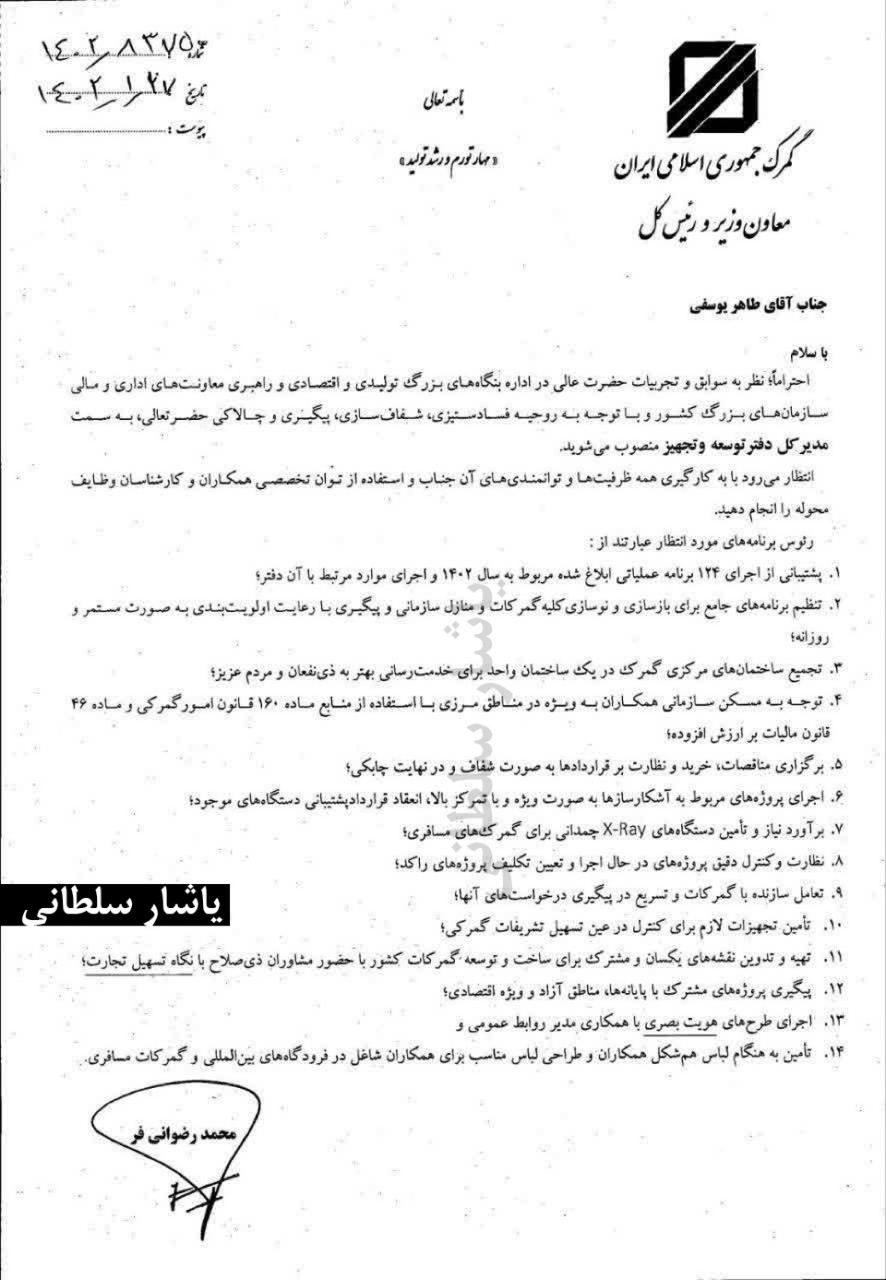 شماره ۱۴۰۲/۸۳۷۵
تاریخ ۱۴۰۲/۱/۲۷
پیوست :
باسمه تعالی
«مهار تورم و رشد تولید»
گمرک جمهوری اسلامی ایران
معاون وزیر و رئیس کل
جناب آقای طاهر یوسفی
با سلام
احتراماً؛ نظر به سوابق و تجربیات حضرت عالی در اداره بنگاه‌های بزرگ تولیدی و اقتصادی و راهبری معاونت‌های اداری و مالی
سازمان‌های بزرگ کشور و با توجه به روحیه فسادستیزی، شفاف‌سازی، پیگیری و چالاکی حضرتعالی، به سمت
مدیرکل دفتر توسعه وتجهیز منصوب می‌شوید.
انتظار می‌رود با به کارگیری همه ظرفیت‌ها و توانمندی‌های آن جناب و استفاده از توان تخصصی همکاران و کارشناسان وظایف
محوله را انجام دهید.
رئوس برنامه‌های مورد انتظار عبارتند از :
۱. پشتیبانی از اجرای ۱۲۴ برنامه عملیاتی ابلاغ شده مربوط به سال ۱۴۰۲ و اجرای موارد مرتبط با آن دفتر؛
۲. تنظیم برنامه‌های جامع برای بازسازی و نوسازی کلیه گمرکات و منازل سازمانی و پیگیری با رعایت اولویت‌بندی به صورت مستمر و
روزانه؛
۳. تجمیع ساختمان‌های مرکزی گمرک در یک ساختمان واحد برای خدمت‌رسانی بهتر به ذی‌نفعان و مردم عزیز؛
۴. توجه به مسکن سازمانی همکاران به ویژه در مناطق مرزی با استفاده از منابع ماده ۱۶۰ قانون امور گمرکی و ماده ۴۶
قانون مالیات بر ارزش افزوده؛
۵. برگزاری مناقصات، خرید و نظارت بر قراردادها به صورت شفاف و در نهایت چابکی؛
۶. اجرای پروژه‌های مربوط به آشکارسازها به صورت ویژه و با تمرکز بالا، انعقاد قراردادپشتیبانی دستگاه‌های موجود؛
۷. برآورد نیاز و تأمین دستگاه‌های X-Ray چمدانی برای گمرک‌های مسافری؛
۸. نظارت وکنترل دقیق پروژه‌های در حال اجرا و تعیین تکلیف پروژه‌های راکد؛
۹. تعامل سازنده با گمرکات و تسریع در پیگیری درخواست‌های آنها؛
۱۰. تأمین تجهیزات لازم برای کنترل در عین تسهیل تشریفات گمرکی؛
۱۱. تهیه و تدوین نقشه‌های یکسان و مشترک برای ساخت و توسعه گمرکات کشور با حضور مشاوران ذی‌صلاح با نگاه تسهیل تجارت؛
۱۲. پیگیری پروژه‌های مشترک با پایانه‌ها، مناطق آزاد و ویژه اقتصادی؛
۱۳. اجرای طرح‌های هویت بصری با همکاری مدیر روابط عمومی و
۱۴. تأمین به هنگام لباس هم‌شکل همکاران و طراحی لباس مناسب برای همکاران شاغل در فرودگاه‌های بین‌المللی و گمرکات مسافری.
محمد رضوانی فر
یاشار سلطانی
یاشار سلطانی